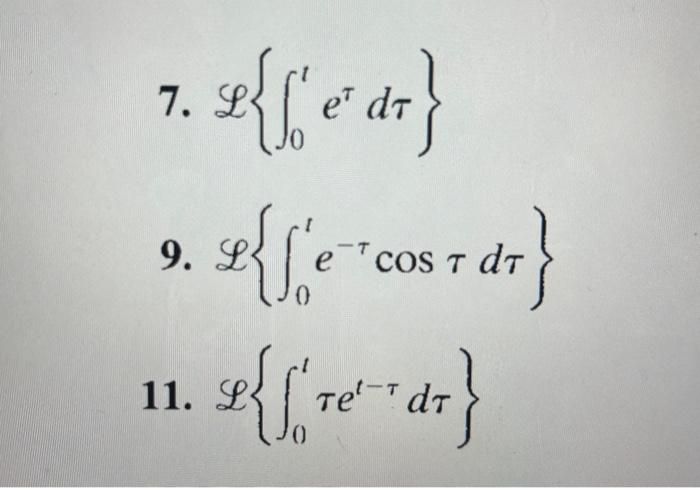 7. ℒ{∫₀ᵗ e^τ dτ}
9. ℒ{∫₀ᵗ e^{-τ} cos τ dτ}
11. ℒ{∫₀ᵗ τe^{t-τ} dτ}